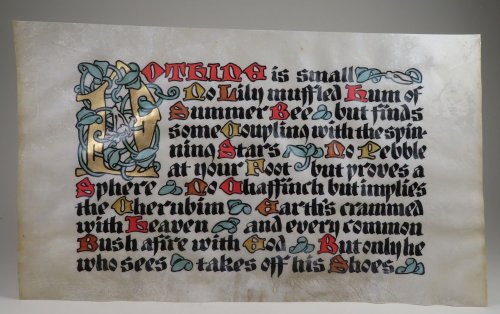 NOTHING is small
No Lily muffled hum of
Summer Bee but finds
some Coupling with the spin-
ning Stars No Pebble
at your Foot but proves a
Sphere No Chaffinch but implies
the Cherubim Earth's crammed
with Heaven and every common
Bush afire with God But only he
who sees takes off his Shoes